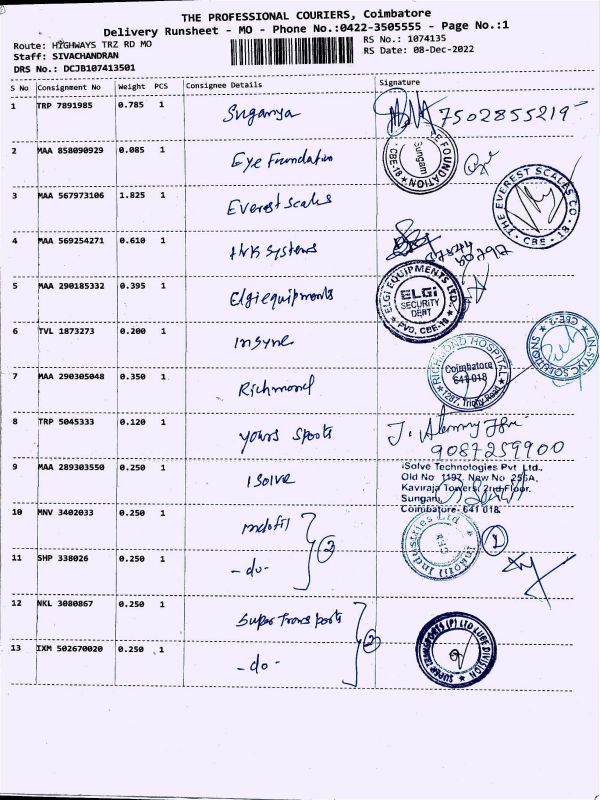 THE PROFESSIONAL COURIERS, Coimbatore
Delivery Runsheet - MO - Phone No.:0422-3505555 - Page No.:1
Route: HIGHWAYS TRZ RD MO
RS No.: 1074135
Staff: SIVACHANDRAN
RS Date: 08-Dec-2022
DRS No.: DCJB107413501
S No Consignment No Weight PCS Consignee Details Signature
1 TRP 7891985 0.785 1 Suganya 7502855219
2 MAA 858090929 0.085 1 Eye Foundation
EYE FOUNDATION Sungam CBE-18
3 MAA 567973106 1.825 1 Everest Scales
THE EVEREST SCALES CO. CBE - 18
4 MAA 569254271 0.610 1 Systems
5 MAA 290185332 0.395 1 Elgi equipments
ELGI EQUIPMENTS LTD. ELGi SECURITY DEPT
6 TVL 1873273 0.200 1 Insync
IN-SYNC SOLUTIONS
7 MAA 290305048 0.350 1 Richmond
RICHMOND HOSPITAL Coimbatore 641 018 1287, Trichy Road
8 TRP 5045333 0.120 1 yours Sports
9087259900
9 MAA 289303550 0.250 1 Isolve
iSolve Technologies Pvt Ltd.,
Old No 1197, New No 256A,
Kaviraja Towers, 2nd Floor,
Sungam,
Coimbatore- 641 018
10 MNV 3402033 0.250 1 Indofil
2
Indofil Industries Ltd CBE
11 SHP 338026 0.250 1 - do -
12 NKL 3080867 0.250 1 Super Transports
2
SUPER TRANSPORTS (P) LTD LUBE DIVISION
13 IXM 502670020 0.250 1 - do -